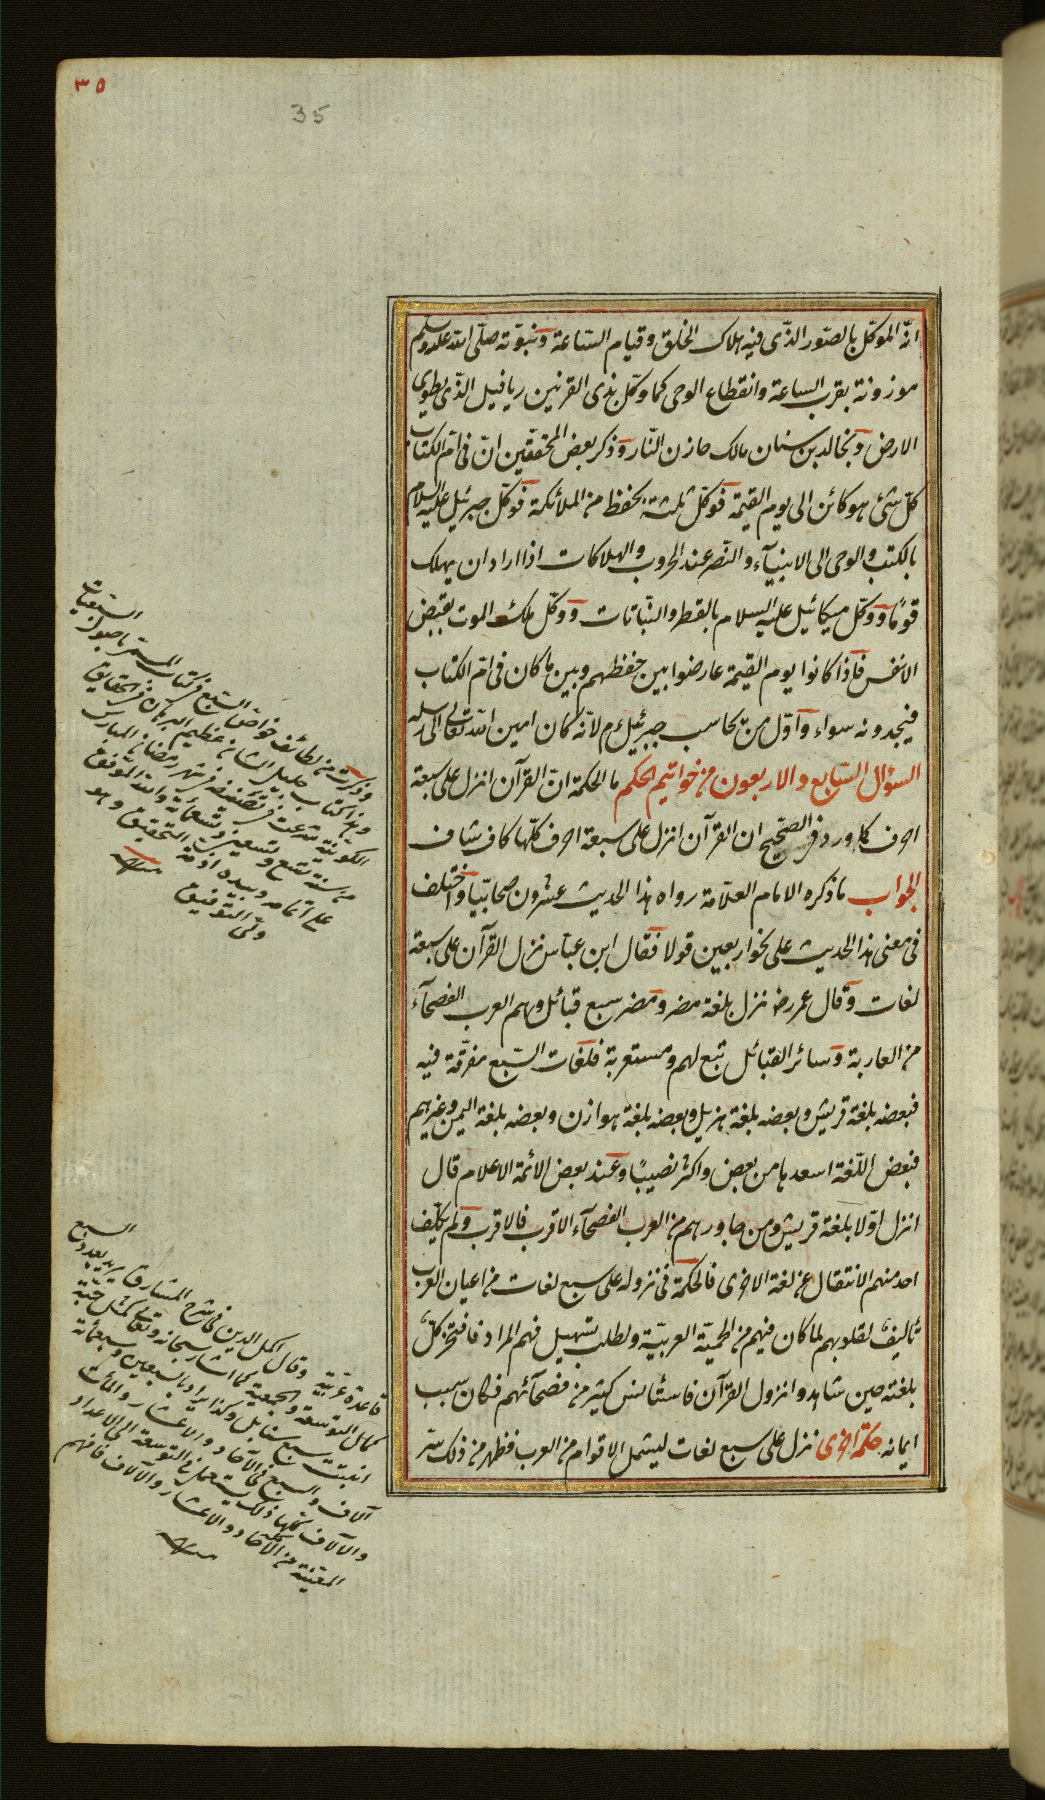 ٣٥
35
انّ الموكّل بالصّور الذّى فيه هلاك الخلق وقيام السّاعة ونبوّته صلّى الله عليه وسلم
موزونة بقرب الساعة وانقطاع الوحى كما وكّل بذى القرنين ريافيل الذّى يطوى
الارض وبخالد بن سنان مالك خازن النّار وذكر بعض المحققّين انّ فى امّ الكتاب
كلّ شئ هو كائن الى يوم القيمة فوكّل ثلثة بحفظ من الملائكة فوكّل جبرئيل عليه السلام
بالكتب والوحى الى الانبيآء والنّصر عند الحروب والهلاكات اذا اراد ان يهلك
قومًا ووكّل ميكائيل عليه السلام بالقطر والنّباتات ووكّل ملك الموت بقبض
الانفس فاذا كانوا يوم القيمة عارضوا بين حفظهم وبين ما كان فى امّ الكتاب
فيجدونه سواء واوّل من يحاسب جبرئيل م لانّه كان امين الله تعالى الى رسله
السؤال السّابع والاربعون من خواتيم الحكم ما الحكمة انّ القرآن انزل على سبعة
احرف كما ورد فى الصّحيح ان القرآن انزل على سبعة احرف كلّها كاف شاف
الجواب ما ذكره الامام العلاّمة رواه هذا الحديث عشرون صحابيّا واختلف
فى معنى هذا الحديث على نحو اربعين قولا فقال ابن عبّاس نزل القرآن على سبعة
لغات وقال عمر رض نزل بلغة مضر ومضر سبع قبائل وهم العرب الفصحآء
من العاربة وسائر القبائل تبع لهم ومستعربة فلغات السّبع مفرّقة فيه
فبعضه بلغة قريش وبعضه بلغة هزيل وبعضه بلغة هوازن وبعضه بلغة اليمن وغيرهم
فبعض اللّغة اسعد بها من بعض واكثر نصيبًا وعند بعض الائمة الاعلام قال
انزل اوّلا بلغة قريش ومن جاورهم من العرب الفصحآء الاقرب فالاقرب ولم يكلّف
احد منهم الانتقال عن لغة الاخرى فالحكمة فى نزوله على سبع لغات من اعيان العرب
تأليف لقلوبهم لما كان فيهم من الحميّة العربيّة ولطلب تسهيل فهم المراد فافتخر كلّ
بلغته حين شاهدوا نزول القرآن فاستأنس كثير من فصحآئهم فكان سبب
ايمانه حكمة اخرى نزل على سبع لغات ليشمل الاقوام من العرب فظهر من ذلك سّر
وذكرت من لطائف خواصّ السّبع فى كتاب المسمّى باصول السّبعيات
وهذا كتاب جليل الشان عظيم البرهان فى الحقايق
الكونية شرعت فى تصنيفه فى شهر رمضان المبارك
من سنة تسع وتسعين وتسعمائة والله الموفّق
على اتمامه وبيده ازمّة التحقيق وهو
ولىّ التوفيق
وقال اكمل الدين فى شرح المشارق يريد بعدد السبع
قاعدة عربيّة
كمال التوسعة والجمعية كما اشار سبحانه وتعالى كمثل حبّة
انبتت سبع سنابل وكذا يراد بالسبعين وسبعمائة
آلاف والسبع فى الآحاد والاعشار والمئات
والآلاف كلّها ذلك يستعمل فى التوسعة الى الاعداد
المعيّنة من الآحاد والاعشار والآلاف فافهم